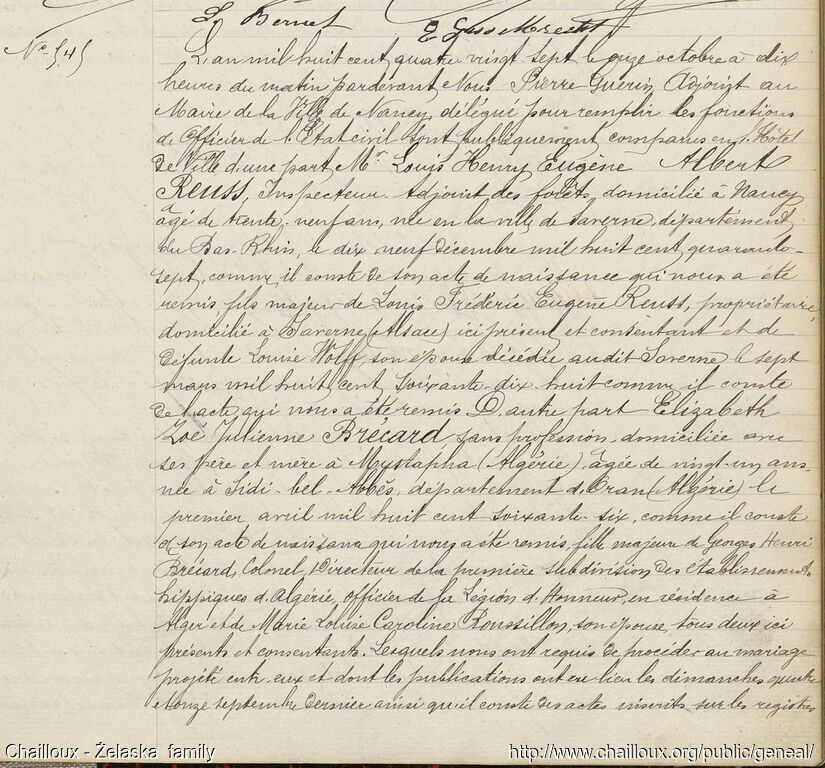 L. Bernet
E Guss
No 545
L'an mil huit cent quatre vingt sept le onze octobre à dix
heures du matin pardevant Nous Pierre Guerin Adjoint au
Maire de la Ville de Nancy, délégué pour remplir les fonctions
de Officier de l'Etat civil sont publiquement comparus en l'Hôtel
de Ville d'une part Mr Louis Henry Eugène Albert
Reuss, Inspecteur-Adjoint des forêts, domicilié à Nancy
âgé de trente-neuf ans, née en la ville de Saverne, département
du Bas-Rhin, le dix neuf décembre mil huit cent quarante-
sept, comme il conste de son acte de naissance qui nous a été
remis, fils majeur de Louis Frédéric Eugène Reuss, propriétaire,
domicilié à Saverne (Alsace) ici présent et consentant et de
défunte Louise Wolff, son épouse décédée audit Saverne le sept
mars mil huit cent soixante-dix-huit comme il conste
de l'acte qui nous a été remis D'autre part Elizabeth
Zoé Julienne Brécard, sans profession, domiciliée avec
ses père et mère à Mustapha (Algérie), âgée de vingt-un ans
née à Sidi-bel-Abbès, département d'Oran (Algérie) le
premier avril mil huit cent soixante-six, comme il conste
de son acte de naissance qui nous a été remis, fille majeure de Georges Henri
Brécard, Colonel, Directeur de la première subdivision des établissements
hippiques d'Algérie, officier de la Légion d'Honneur, en résidence à
Alger et de Marie Louise Caroline Roussillon, son épouse, tous deux ici
présents et consentants. Lesquels nous ont requis de procéder au mariage
projeté entre eux et dont les publications ont eu lieu les dimanches quatre
et onze septembre dernier ainsi qu'il conste des actes inscrits sur les registres
Chailloux - Želaska family
http://www.chailloux.org/public/geneal/